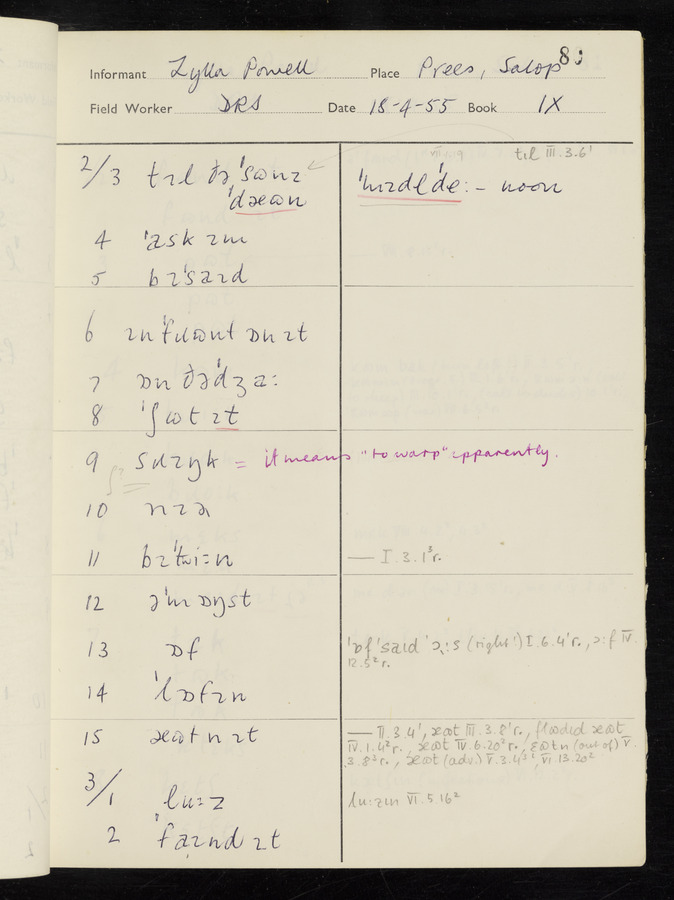 8
Informant Zylla Powell Place Prees, Salop
Field Worker DRS Date 18-4-55 Book IX
2/3 tɪl ðə ˈsəʊnɪ
ˈdæʊn
tɪl III.3.6¹
ˈmɪdlˈdeː - noon
4 ˈask ɪm
5 bɪˈsaɪd
6 ɪnˈfɹʊnt ɒn ɪt
7 ɒn ðəˈdʒaː
8 ˈʃʊt ɪt
9 sɹɪŋk = it means "to warp" apparently.
10 nɪə
11 bɪˈtwiːn
— I.3.1³r.
12 əˈmɒŋst
13 ɒf
ˈɒf ˈsaɪd ˈɔːs (right!) I.6.4ʳr., ɔːf IV.
12.5²r.
14 ˈlɒfɪn
15 æʊt n ɪt
— II.3.4¹, æʊt III.3.8¹r., flʊdɪd æʊt
IV.1.4²r., æʊt IV.6.20²r., ɛʊtn (out of) V.
3.8²r., æʊt (adv.) V.3.4³¹, VI.13.20²
3/1 luːz
luːzɪn VI.5.16²
2 ˈfaɪnd ɪt